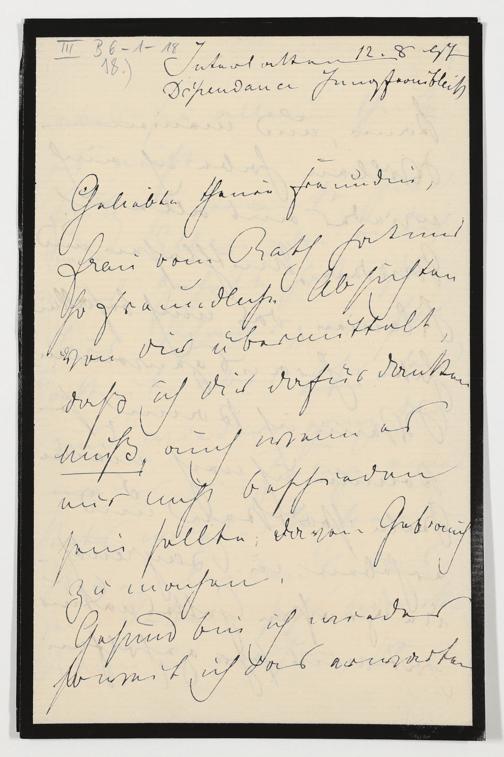 III B 6-1-18
18.)
Interlaken 12. 8. 97
Dépendance Jungfraublick
Geliebte theure Freundin,
Frau vom Rath hat mir
so freundliche Absichten
von dir übermittelt,
daß ich dir dafür danken
muß, auch wenn es
mir nicht beschieden
sein sollte, davon Gebrauch
zu machen.
Gesund bin ich wieder
soweit ich das erwarten